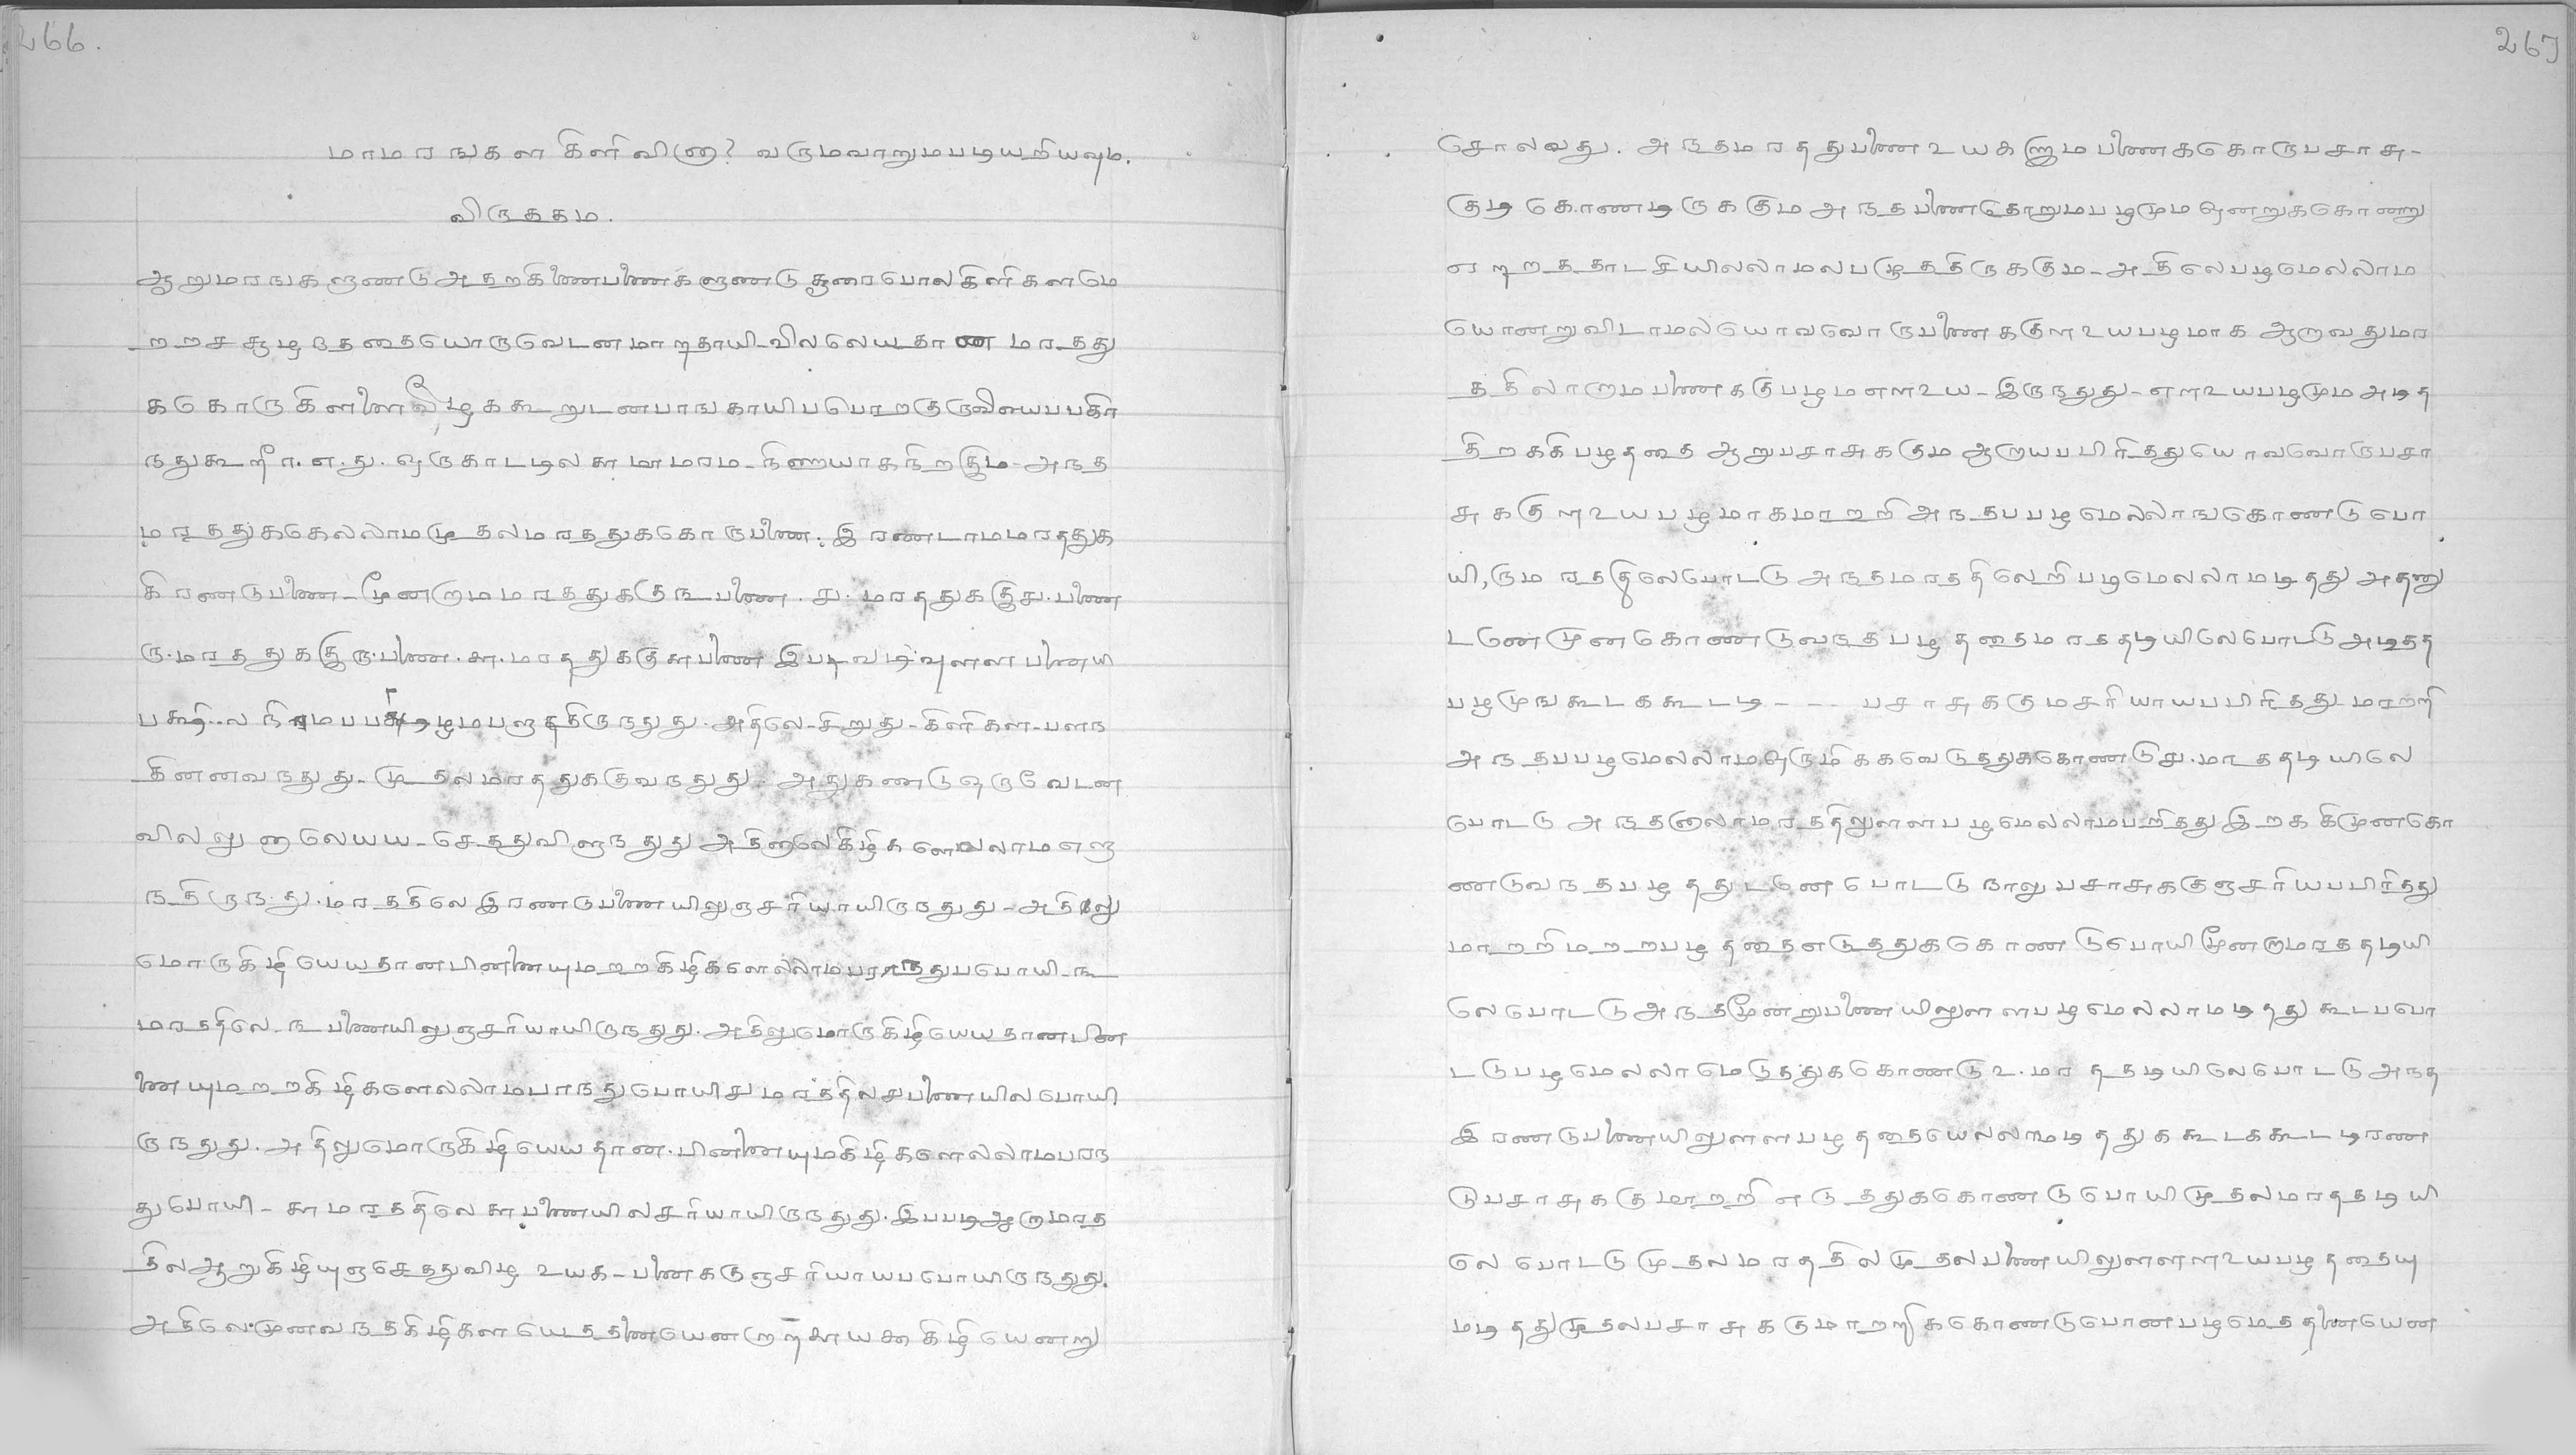 266.
மாமரஙகள கிளி வினா? வருமவாறுமபடியறியவும.
விருததம.
ஆறுமரஙகளுணடு அதறகிணைபணைகளுணடு சூரைபொலகிளிகளமெ
றறச சூழநததையொருவெடனமாறிதாயி - விலலெயதான மரதது
ககொருகிளளைவீழககூறுடனபாஙகாயிபபொறகுருவியைபபகிா
நதுகூறீா. எ.து. ஒருகாடடில ௬ மாமரம - நிணையாகநிறகும - அநத
மரததுககெலலாமமுதலமரததுககொருபணை. இரணடாமமரததுக
கிரணடுபணை - மூனறாமமரததுககு௩பணை. ௪. மரததுககு௪.பணை
௫.மரததுககு௫.பணை. ௬. மரததுககு௬பணை இபடிவடிவுளள பணையி
அதிலெ - சிறுது - கிளிகள - பளந
கினனவநதுது - முதலமரததுககுவநதுது. அதுகணடுஒருவேடன
விலலுனாலெயய - செததுவிளுநதுது அதினாலெகிழிகளெலலாமஎறு
நதிருந.து. மரததிலெ இரணடுபணையிலுஞசரியாயிருநதுது - அதிலு
மொருகிழியெயதானபினனையுமறறகிழிகளெலலாமபரநதுபபொயி - ௩
மரததிலெ ௩ பணையிலுஞசரியாயிருநதுது. அதிலுமொருகிழியெயதானபின
னையுமறறகிழிகளெலலாமபரநதுபொயி௪மரததில௪பணையிலபொயி
ருநதுது. அதிலுமொருகிழியெயதான. பினனையுமகிழிகளெலலாமபரந
துபொயி - ௬ மரததிலெ ௬பணையிலசரியாயிருநதுது. இபபடிஆறுமரத
திலஆறுகிழியுஞசெததுவிழ ௨௰௧ - பணைககுஞசரியாயபபொயிருநதுது.
அதிலெமுனவநதகிழிகள யெததனையெனறால கிழியெனறு
267
சொலவது. அநதமரததுபணை ௨௰௧ னும பணைககொருபசாசு -
குடிகொணடிருககும அநதபணைதொறுமபழமும ஒனறுககொனறு
எறறததாடசியிலலாமலபழுததிருககும - அதிலெபழமெலலாம
யொனறுவிடாமலயொவவொருபணைககு௱௨௰பழமாக ஆறுவதுமர
ததிலாறுமபணைககுபழம௭௱௨௰ - இருநதுது - ௭௱௨௰பழமும அடித
திறககிபழததை ஆறுபசாசுககும ஆறாயபபிரிததுயொவவொருபசா
சுககு௱௨௰பழமாகமாறறி அநதபபழமெலலாஙகொணடுபொ
யி, ௫மரததிலெபொடடு அநதமரததிலெறிபழமெலலாமடிதது அதனு
டனெமுனகொணடுவநதபழததைமரததடியிலெபொடடுஅடிதத
பழமுஙகூடககூடடி - - - பசாசுககுமசரியாயபபிரிததுமாறறி
அநதபபழமெலலாமஒருமிககவெடுததுககொணடு௪. மரததடியிலெ
பொடடு அநதனாலாமரததிலுளளபழமெலலாமபறிதது இறககிமுனகொ
ணடுவநதபழததுடனெ பொடடு நாலுபசாசுககுஞசரியபபிரிதது
மாறறிமறறபழததைஎடுததுககொணடுபொயிமூனறாமரததடியி
லெபொடடுஅநதமூனறுபணையிலுளளபழமெலலாமடிதது கூடபபொ
டடுபழமெலலாமெடுததுககொணடு ௨. மரததடியிலெபொடடு அநத
இரணடுபணையிலுளளபழததையெலலாமடிததுககூடககூடடிரண
டுபசாசுககுமாறறி எடுததுககொணடுபொயிமுதலமரததடியி
லெ பொடடுமுதலமரததிலமுதலபணையிலுளள௱௨௰பழததையு
மடிததுமுதலபசாசுககுமாறறிககொணடுபொனபழமெததனையென